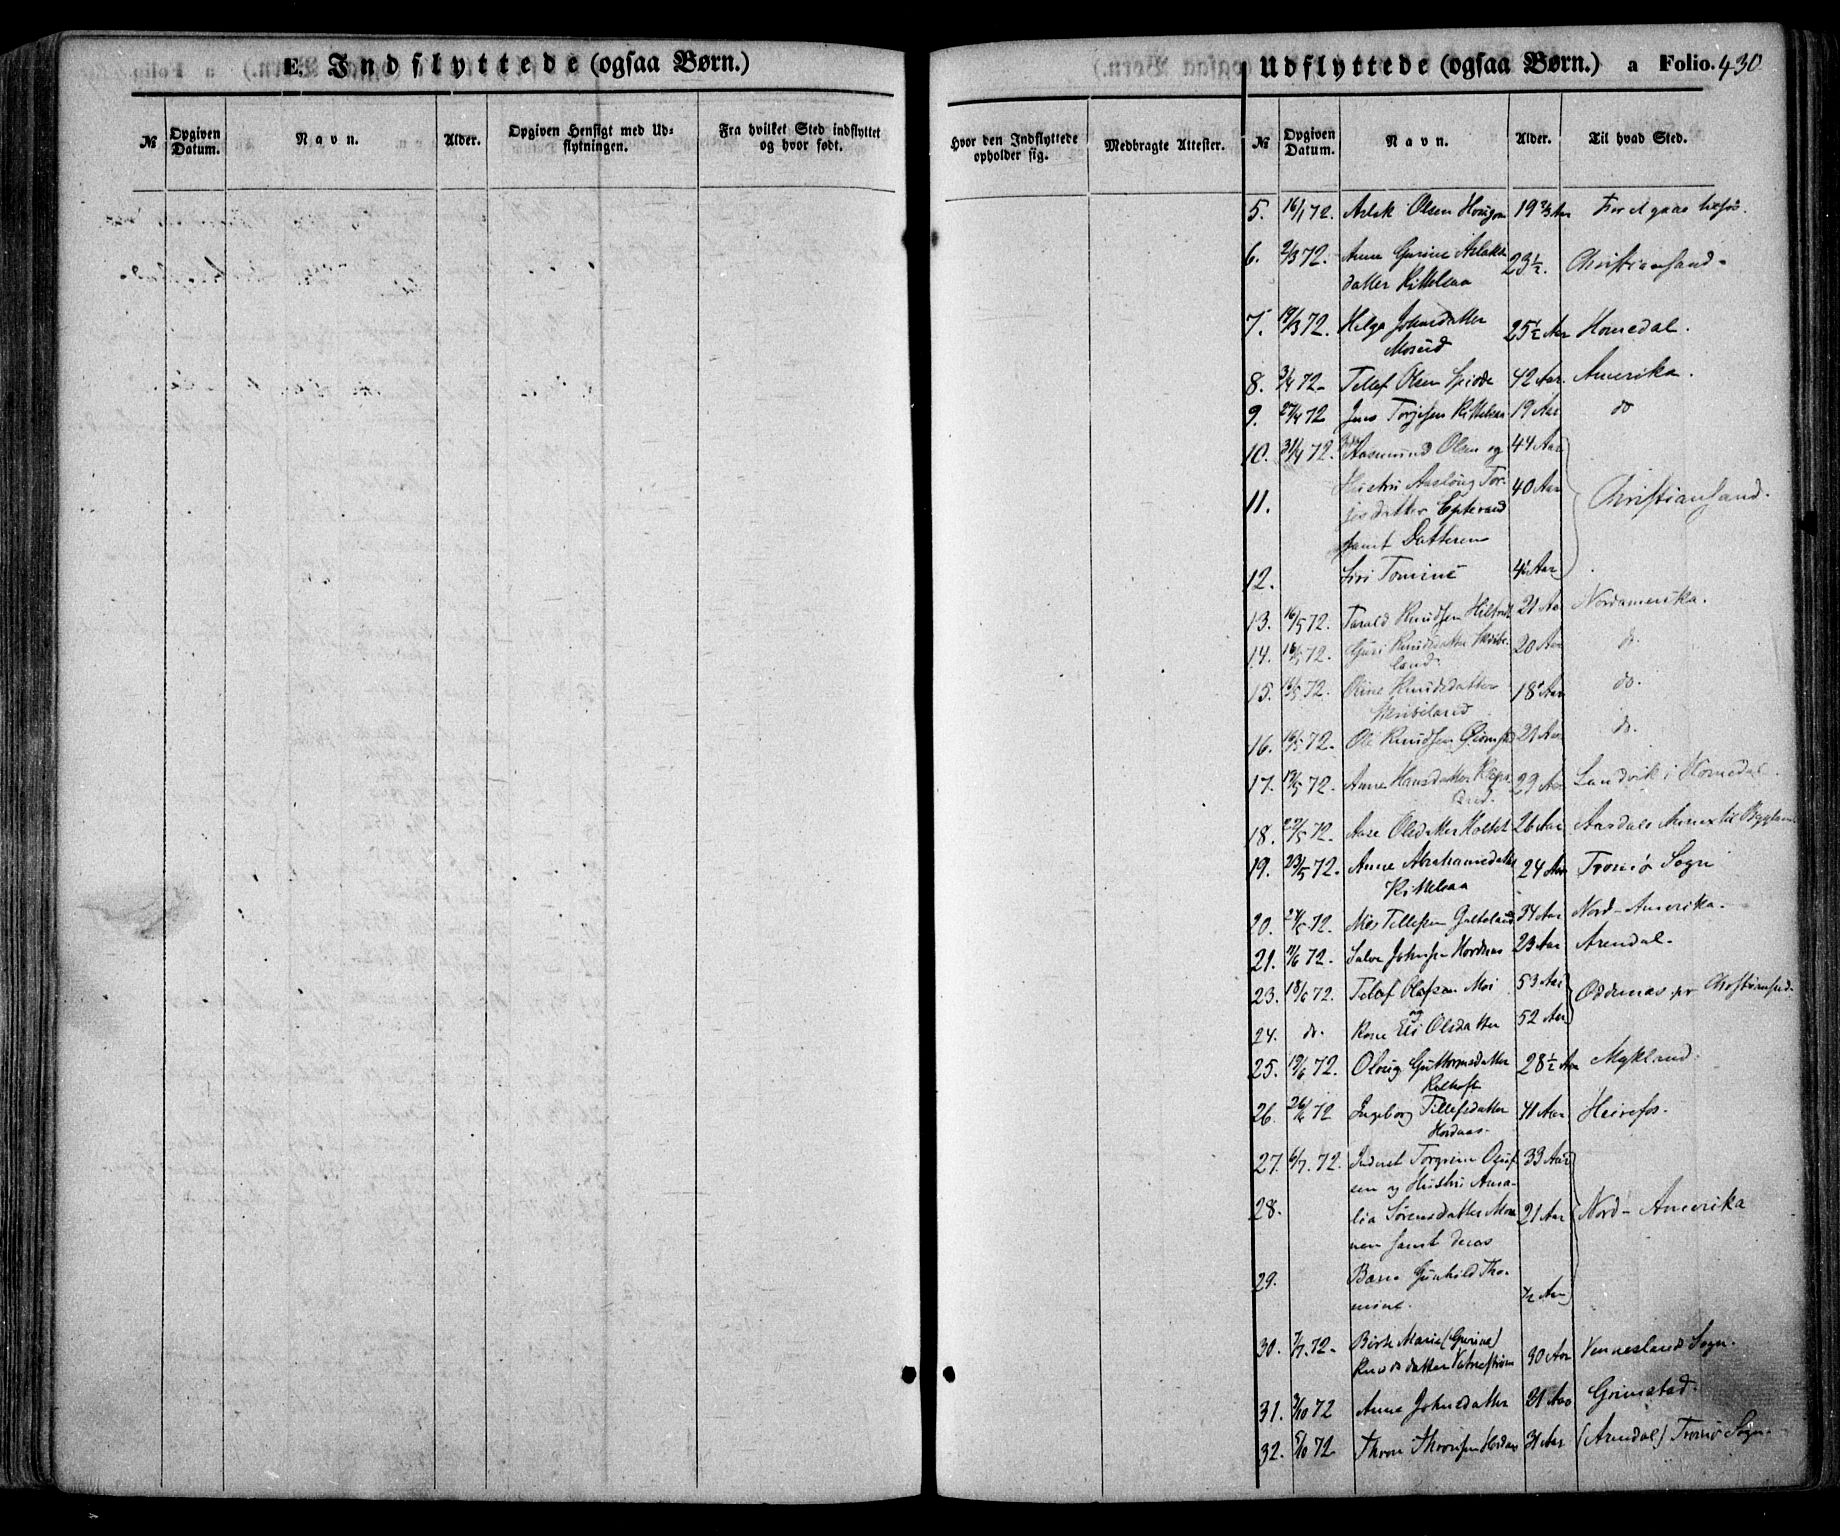 E. Indflyttede (ogsaa Børn.)
№ Opgiven Datum. Navn. Alder. Opgiven Hensigt med Udflytningen. Fra hvilket Sted indflyttet og hvor født.
Udflyttede (ogsaa Børn.) a Folio. 430
Hvor den Indflyttede opholder sig. Medbragte Attester. № Opgiven Datum. Navn. Alder. Til hvad Sted.
5. 16/1 72. Aslak Olsen 19 2/3 Aar
6. 2/3 72. Anne Gurine Aslaks- 23½. Christiansand.
datter Kittelsaa
7. 19/3 72. Helga Johnsdatter 25½ Aar Homedal.
Mosud
8. 3/4 72 Tellef Olsen 42 Aar. Amerika.
9. 27/4 72 Jens Torjesen Kittelsaa 19 Aar do
10. 31/4 72. Aasmund Olsen og 44 Aar
11. Hustru Aaslaug Tor- 40 Aar Christiansand.
jesdatter Epteraad
samt Datteren
12. Siri Tomine 4½ Aar
13. 16/5 72. Tarald Knudsen 21 Aar Nordamerika.
14. 16/5 72. Guri Knudsdatter Skeibe- 20 Aar do.
land.
15. 16/5 72. Oline Knudsdatter 18 Aar do.
Skeibeland
16. 16/5 72. Ole Knudsen 21 Aar do.
17. 19/5 72. Anne Hansdatter 29 Aar Landvik i Homedal.
18. 22/5 72. Aase Olsdatter Holtet 26 Aar Aasdals Annex til Bygland
19. 23/5 72. Anne Abrahamsdatter 24 Aar Tromø Sogn
Kittelsaa
20. 27/5 72. Nils Tellefsen 34 Aar Nord-Amerika.
21. 11/6 72. Salve Johnsen Hordnas 23 Aar Arendal.
23. 18/6 72. Tellef Olafsen Moi 53 Aar Oddernas pr Christiansand.
og
24. do. Kone Eli Olsdatter 52 Aar
25. 19/6 72. Oloug Guttormsdatter 28½ Aar Mykland.
26. 26/6 72 Ingeborg Tellefsdatter 41 Aar Heirefos.
Hordaas.
27. 6/7. 72. Inderst Torgrim Oluf- 33 Aar
sen og Hustru Ama-
28. lia Sørensdatter Mon- 21 Aar Nord-Amerika
nen samt deres
29. Barn Gunhild Tho- ½ Aar
mine.
30. 7/7. 72. Birte Marie (Gurine) 30 Aar Venneslands Sogn.
Knudsdatter Vatnestrøm
31. 3/10 72 Anne Johnsdatter 21 Aar Grimstad.
32. 5/10 72 Thore Thorsen Hordas 31 Aar (Arendal) Tromø Sogn.